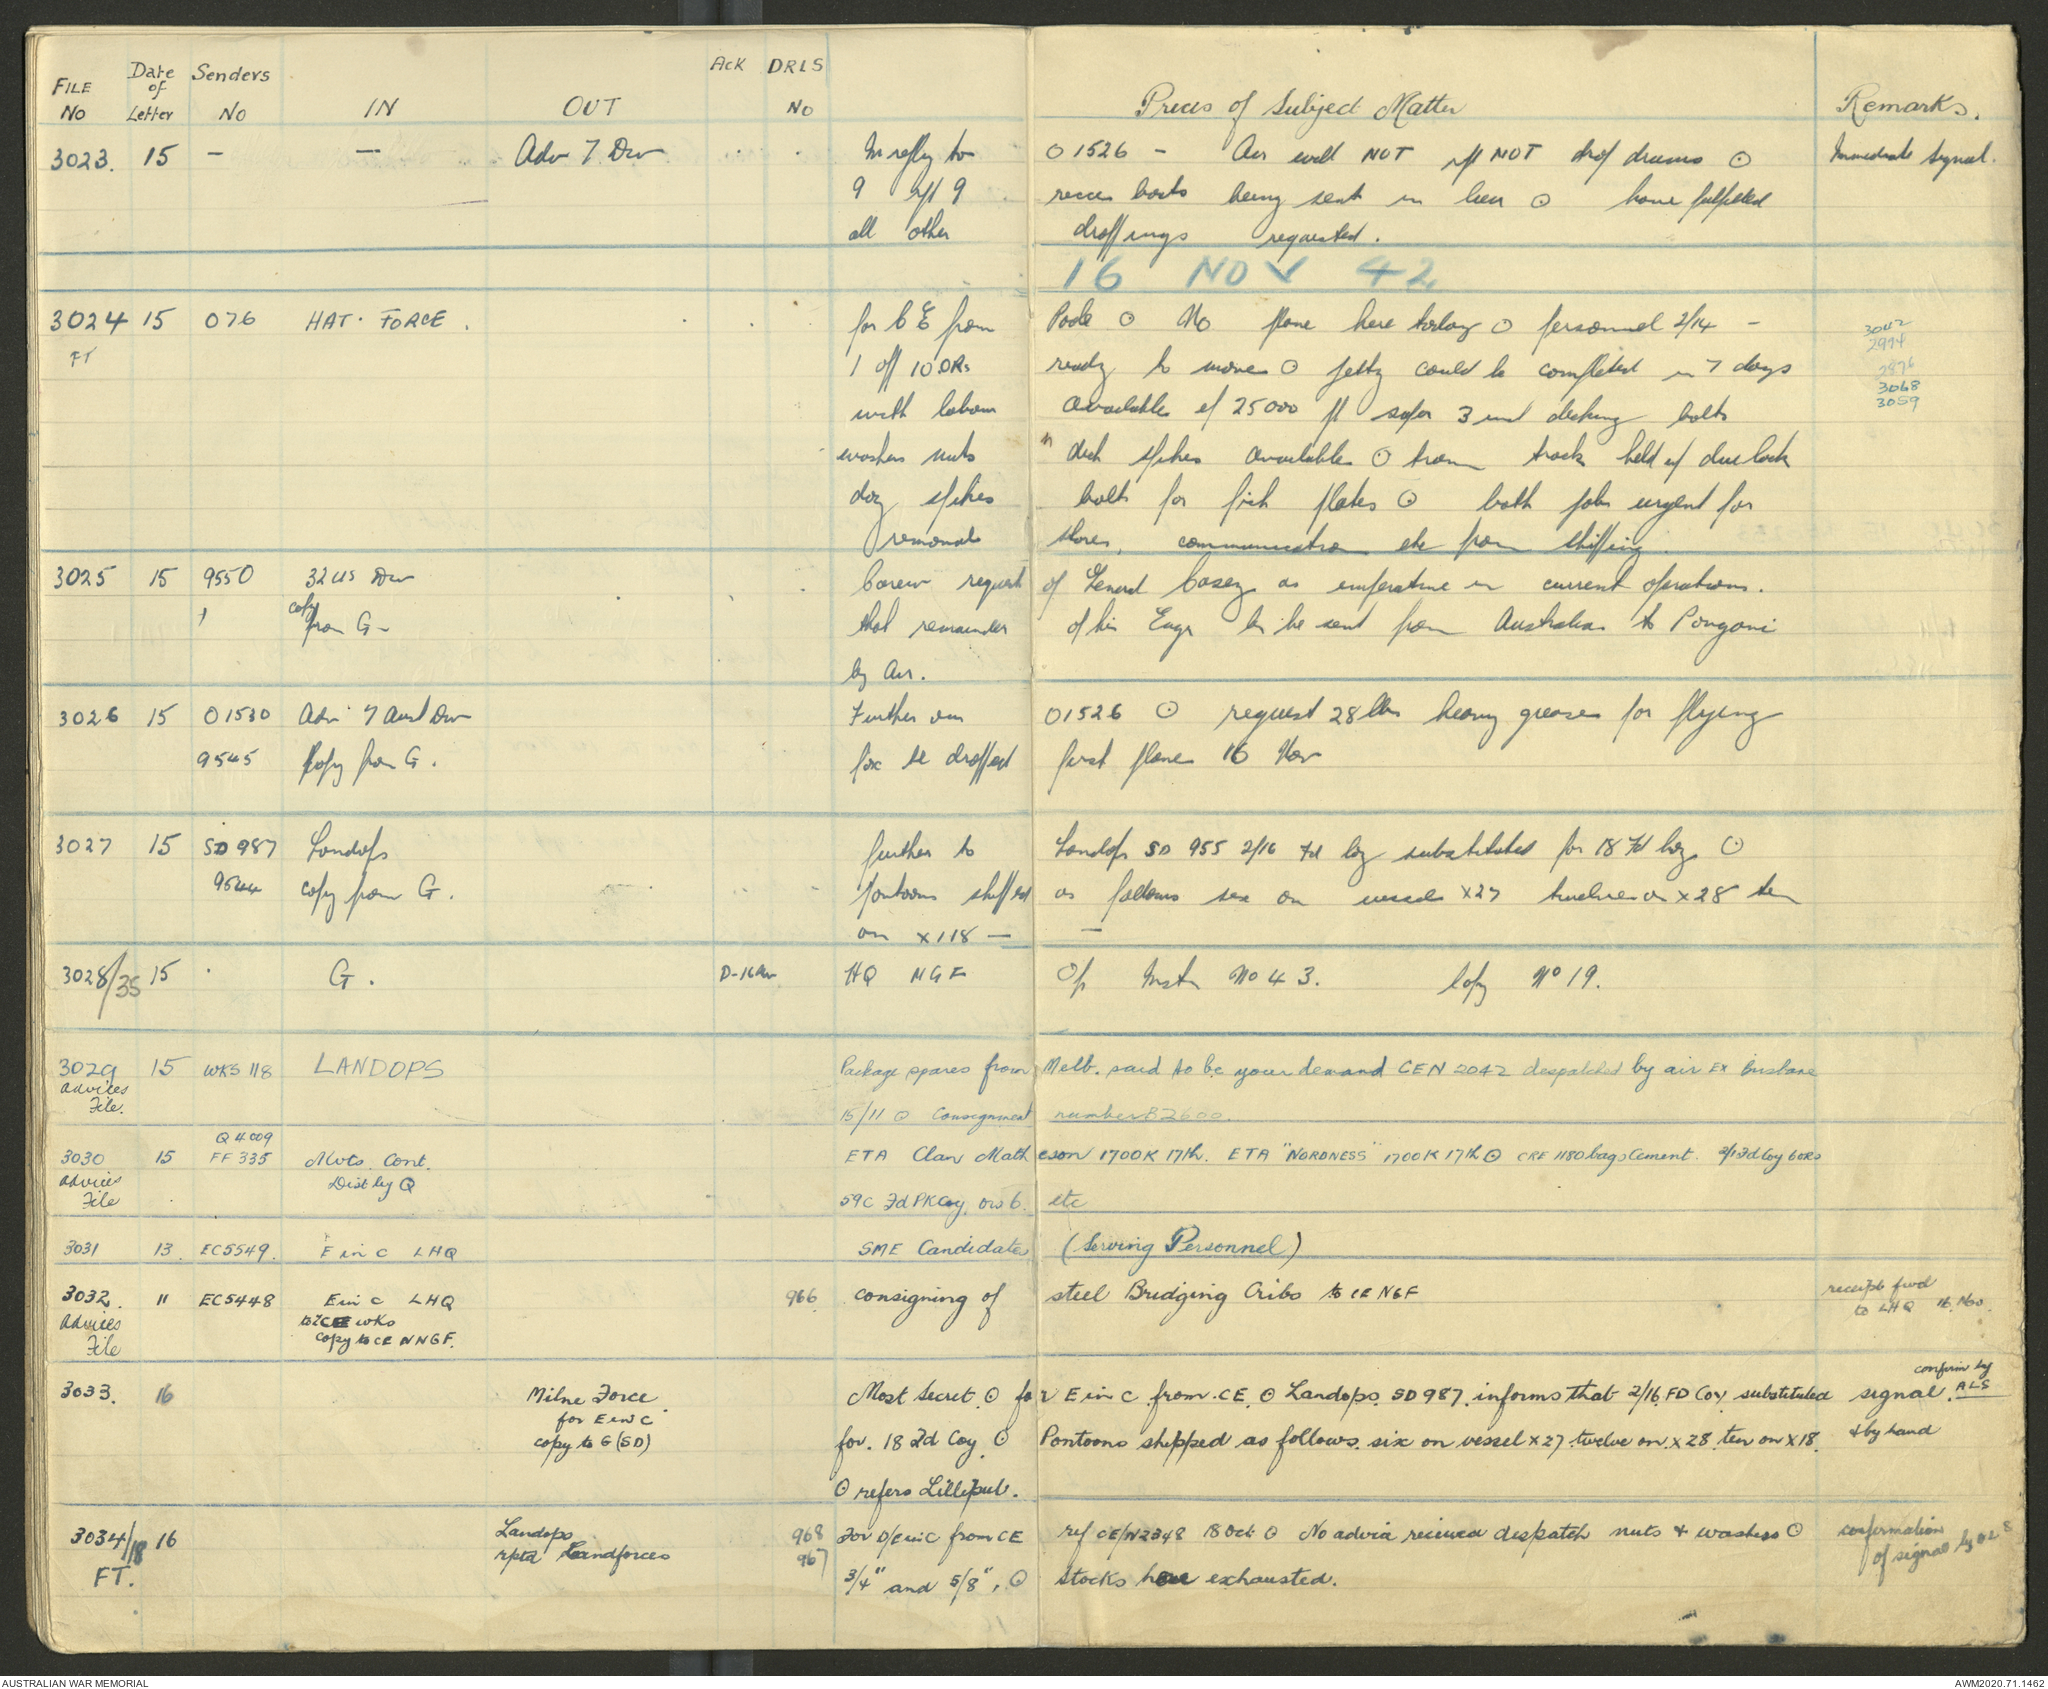 FILE No Date of Letter Senders No IN OUT Ack DRLS No Precis of Subject Matter Remarks.
3023. 15 - - Adv 7 Div In reply to O1526 - Air will NOT rpt NOT drop drums ⊙ Immediate Signal.
9 rpt 9 recce boats being sent in lieu ⊙ have fulfilled
all other droppings requested.
16 NOV 42
3024 15 076 HAT. FORCE. for CE from Poole ⊙ No plane here today ⊙ personnel 2/14 - 3042
FT 1 off 10 ORs ready to move ⊙ jetty could be completed in 7 days 2994
2876
with labour available if 25000 ft super 3 inch decking bolts 3068
3059
washers nuts " deck spikes available ⊙ tram track held up due lack
dog spikes bolts for fish plates ⊙ both jobs urgent for
removal stores, communication etc from shipping.
3025 15 9550 32 US Div Carew request of General Casey as imperative in current operations.
copy from G- that remainder of his Engr to be sent from Australia to Pongani
by Air.
3026 15 O1530 Adv 7 Aust Div Further our O1526 ⊙ request 28 lbs heavy grease for flying
9545 Copy from G. fox be dropped first plane 16 Nov
3027 15 SD 987 Landops further to Landops SD 955 2/16 Fd Coy substituted for 18 Fd Coy ⊙
9544 copy from G. pontoons shipped as follows six on vessel X27 twelve on X28 ten
on X118 - -
3028/35 15 G. D-16 Nov HQ NGF Op Instn No 43. Copy No 19.
3029 15 WKS 118 LANDOPS Package spares from Melb. said to be your demand CEN 2042 despatched by air EX Brisbane
Advices File. 15/11 ⊙ Consignment number 82600.
Q 4009
3030 15 FF 335 Mvts. Cont. ETA Clan Matheson 1700K 17th. ETA "NORDNESS" 1700K 17th ⊙ CRE 1180 bags Cement. 2/1 Fd Coy 6 ORs
Advices File Dist by Q 59C Fd PK Coy, ORs 6. etc
3031 13. EC5549. E in C LHQ SME Candidates (Serving Personnel)
3032. 11 EC5448 E in C LHQ 966 consigning of steel Bridging Cribs to CE NGF receipts fwd
to LHQ 16. Nov.
Advices to CE wks
File copy to CE NNGF.
3033. 16 Milne Force Most Secret. ⊙ for E in C from. CE. ⊙ Landops SD 987. informs that 2/16 FD Coy substituted signal. confirm by ALS
for E in C
copy to G (SD) for. 18 Fd Coy. ⊙ Pontoons shipped as follows. six on vessel X27. twelve on. X28. ten on X18. & by hand
⊙ refers Lilliput.
3034/18 16 Landops 968 For D/E in C from CE ref CE/N2348 18 Oct ⊙ No advice received despatch nuts & washers ⊙ confirmation
FT. rptd Landforces 967 3/4" and 5/8". ⊙ Stocks here exhausted. of signal by 028
AUSTRALIAN WAR MEMORIAL AWM2020.71.1462